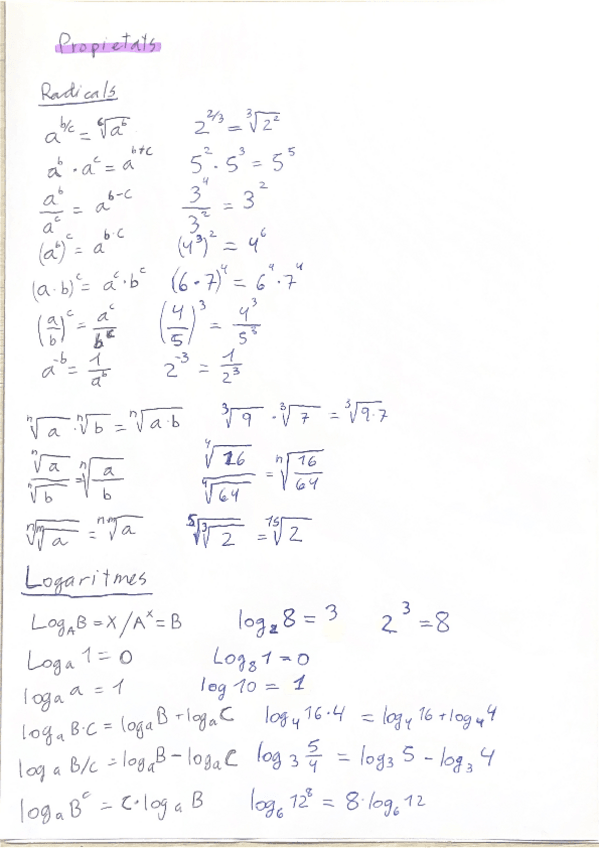 Propietats
Radicals
a^(b/c) = ᶜ√(a^b)   2^(2/3) = ³√(2²)
a^b · a^c = a^(b+c)   5² · 5³ = 5⁵
a^b / a^c = a^(b-c)   3⁴ / 3² = 3²
(a^b)^c = a^(b·c)   (4³)² = 4⁶
(a·b)^c = a^c · b^c   (6·7)⁴ = 6⁴ · 7⁴
(a/b)^c = a^c / b^c   (4/5)³ = 4³ / 5³
a^(-b) = 1 / a^b   2^(-3) = 1 / 2³
ⁿ√a · ⁿ√b = ⁿ√(a·b)   ³√9 · ³√7 = ³√(9·7)
ⁿ√a / ⁿ√b = ⁿ√(a/b)   ⁴√16 / ⁴√64 = ⁿ√(16/64)
ⁿ√(ᵐ√a) = ⁿᵐ√a   ⁵√(³√2) = ¹⁵√2
Logaritmes
Log_A B = X / A^x = B   log₂ 8 = 3   2³ = 8
Log_a 1 = 0   Log₈ 1 = 0
log_a a = 1   log 10 = 1
log_a B·C = log_a B + log_a C   log₄ 16·4 = log₄ 16 + log₄ 4
log_a B/C = log_a B - log_a C   log₃ 5/4 = log₃ 5 - log₃ 4
log_a B^c = C·log_a B   log₆ 12⁸ = 8·log₆ 12